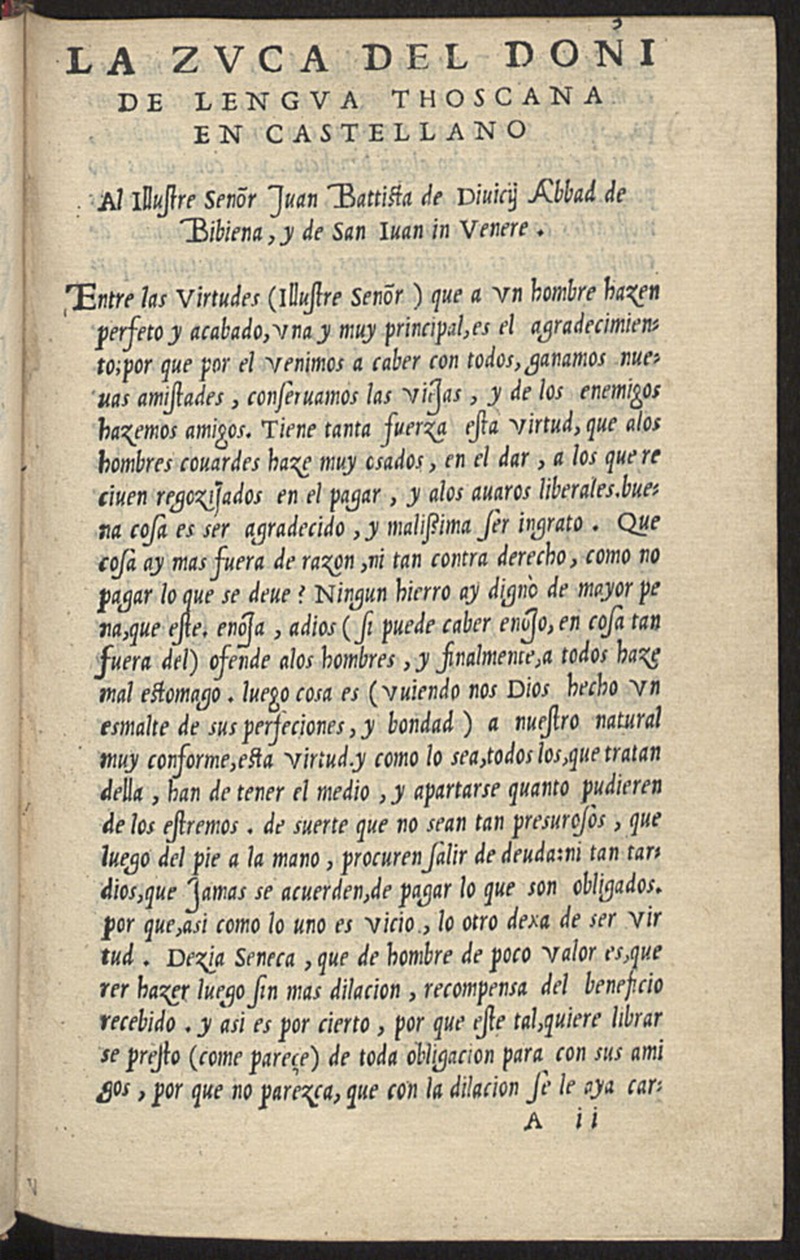 3
LA ZVCA DEL DOÑI
DE LENGVA THOSCANA
EN CASTELLANO
Al Illuſtre Senõr Juan Battiſta de Diuicij Abbad de
Bibiena, y de San Iuan in Venere .
Entre las Virtudes (Illuſtre Senõr ) que a vn hombre hazen
perfeto y acabado, vna y muy principal, es el agradecimien-
to; por que por el venimos a caber con todos, ganamos nue-
uas amiſtades , conſeruamos las viejas , y de los enemigos
hazemos amigos. Tiene tanta fuerza eſta virtud, que alos
hombres couardes haze muy osados , en el dar , a los que re
ciuen regozijados en el pagar , y alos auaros liberales. bue-
na coſa es ser agradecido , y malißima ſer ingrato . Que
coſa ay mas fuera de razon , ni tan contra derecho, como no
pagar lo que se deue ? Ningun hierro ay digno de mayor pe
na, que eſte. enoja , adios ( ſi puede caber enojo, en coſa tan
fuera del) ofende alos hombres , y finalmente, a todos haze
mal eſtomago . luego cosa es ( vuiendo nos Dios hecho vn
esmalte de sus perfeciones, y bondad ) a nueſtro natural
muy conforme, eſta virtud. y como lo sea, todos los, que tratan
della , han de tener el medio , y apartarse quanto pudieren
de los eſtremos . de suerte que no sean tan presuroſos , que
luego del pie a la mano , procuren ſalir de deuda: ni tan tar-
dios, que Jamas se acuerden, de pagar lo que son obligados.
por que, asi como lo uno es vicio , lo otro dexa de ser vir
tud . Dezia Seneca , que de hombre de poco valor es, que
rer hazer luego ſin mas dilacion , recompensa del beneficio
recebido . y asi es por cierto , por que eſte tal, quiere librar
se preſto (come pareçe) de toda obligacion para con sus ami
gos , por que no parezca, que con la dilacion ſe le aya car-
A ii